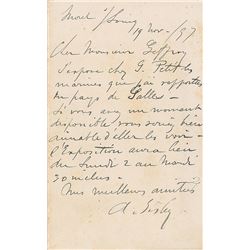 Moret s/Loing
19 Nov - / 97
Cher Monsieur Geffroy
J'expose chez G. Petit les
marines que j'ai rapportées
du pays de Galles -
Si vous avez un moment
disponible vous seriez bien
aimable d'aller les voir -
l'Exposition aura lieu
du Lundi 2 au Mardi
30 inclus -
Mes meilleures amitiés
A. Sisley